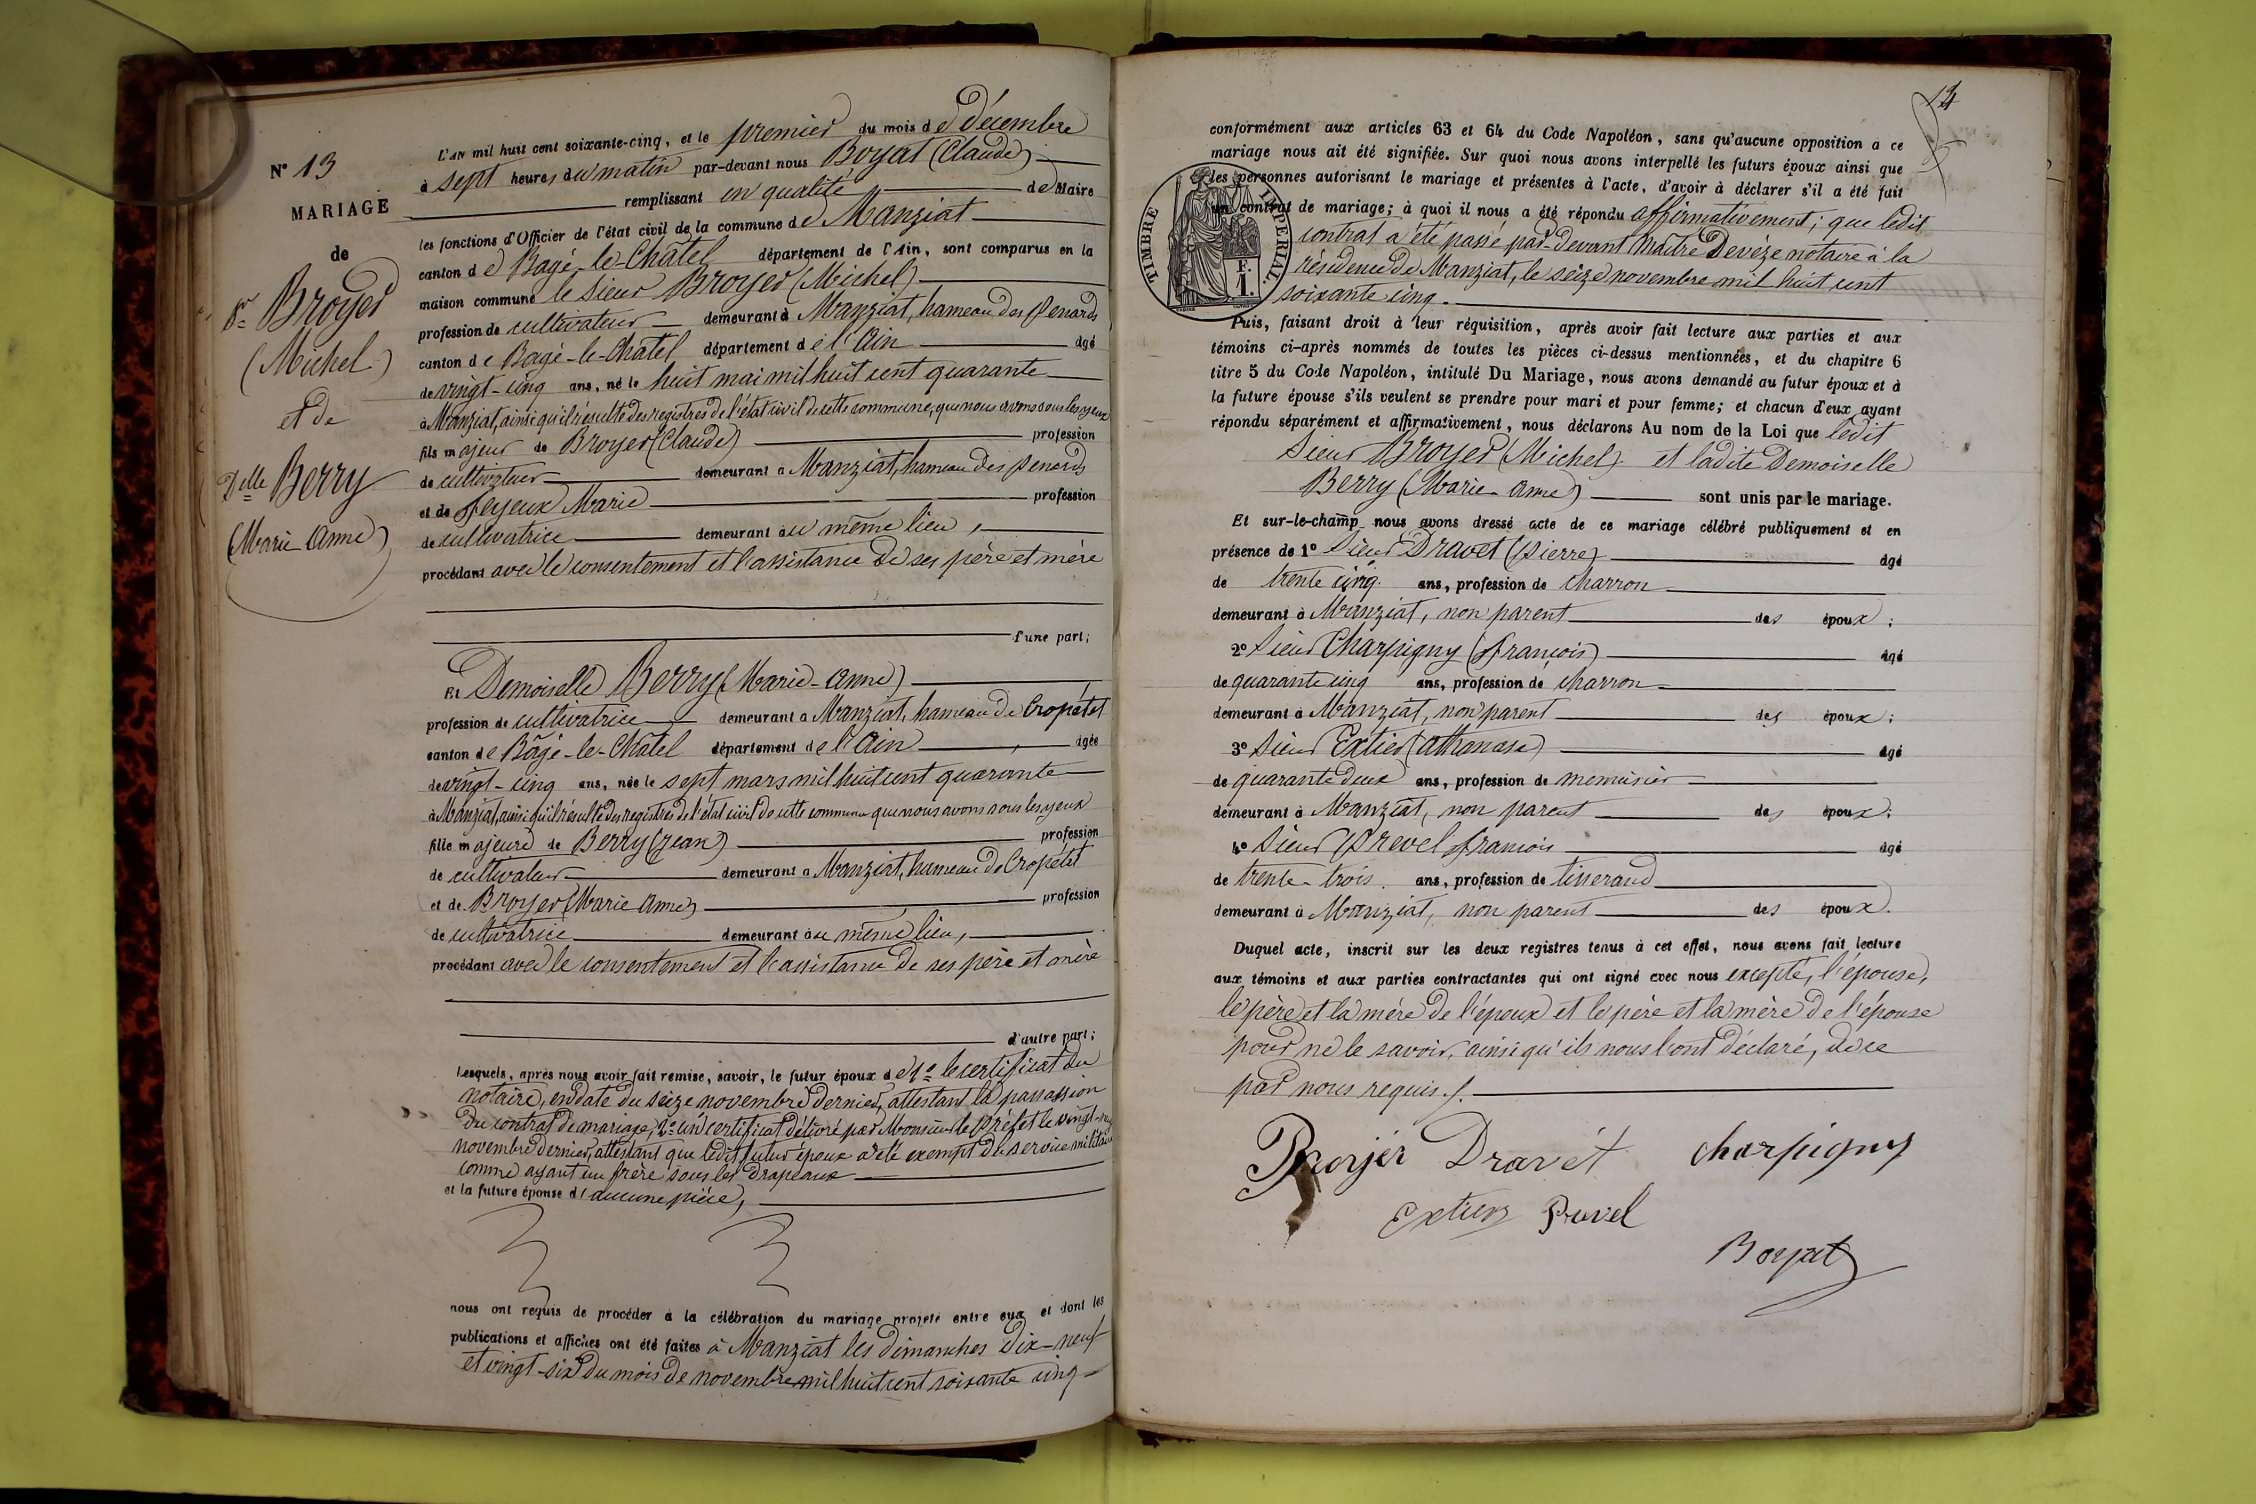 N° 13
MARIAGE
de
Sr Broyer
(Michel)
et de
Delle Berry
(Marie-Anne)
L'AN mil huit cent soixante-cinq, et le premier du mois de décembre
à sept heures du matin par-devant nous Boyat (Claude)
remplissant en qualité de Maire
les fonctions d'Officier de l'état civil de la commune de Manziat
canton de Bagé-le-Châtel département de l'Ain, sont comparus en la
maison commune le sieur Broyer (Michel)
profession de cultivateur demeurant à Manziat, hameau des Penards
canton de Bagé-le-Châtel département de l'Ain âgé
de vingt-cinq ans, né le huit mai mil huit cent quarante
à Manziat, ainsi qu'il résulte des registres de l'état civil de cette commune, que nous avons sous les yeux
fils majeur de Broyer (Claude) profession
de cultivateur demeurant à Manziat, hameau des Penards
et de Feyeux Marie profession
de cultivatrice demeurant au même lieu,
procédant avec le consentement et l'assistance de ses père et mère
d'une part;
Et Demoiselle Berry (Marie-Anne)
profession de cultivatrice demeurant à Manziat, hameau de Cropétet
canton de Bâgé-le-Châtel département de l'Ain, âgée
de vingt-cinq ans, née le sept mars mil huit cent quarante
à Manziat, ainsi qu'il résulte des registres de l'état civil de cette commune que nous avons sous les yeux
fille majeure de Berry (Jean) profession
de cultivateur demeurant à Manziat, hameau de Cropétet
et de Broyer (Marie Anne) profession
de cultivatrice demeurant au même lieu,
procédant avec le consentement et l'assistance de ses père et mère
d'autre part;
Lesquels, après nous avoir fait remise, savoir, le futur époux de 1° le certificat du
notaire, en date du seize novembre dernier, attestant la passassion
du contrat de mariage, 2° un certificat délivré par Monsieur le Préfet le
novembre dernier, attestant que ledit futur époux a été exempt du service militaire
comme ayant un frère sous les drapeaux
et la future épouse d'aucune pièce,
nous ont requis de procéder à la célébration du mariage projeté entre eux et dont les
publications et affiches ont été faites à Manziat les dimanches dix-neuf
et vingt-six du mois de novembre mil huit cent soixante cinq
13
conformément aux articles 63 et 64 du Code Napoléon, sans qu'aucune opposition à ce
mariage nous ait été signifiée. Sur quoi nous avons interpellé les futurs époux ainsi que
les personnes autorisant le mariage et présentes à l'acte, d'avoir à déclarer s'il a été fait
un contrat de mariage; à quoi il nous a été répondu affirmativement; que ledit
contrat a été passé par-devant Maître Devèze notaire à la
résidence de Manziat, le seize novembre mil huit cent
soixante cinq.
TIMBRE IMPÉRIAL.
F.
1.
Puis, faisant droit à leur réquisition, après avoir fait lecture aux parties et aux
témoins ci-après nommés de toutes les pièces ci-dessus mentionnées, et du chapitre 6
titre 5 du Code Napoléon, intitulé Du Mariage, nous avons demandé au futur époux et à
la future épouse s'ils veulent se prendre pour mari et pour femme; et chacun d'eux ayant
répondu séparément et affirmativement, nous déclarons Au nom de la Loi que ledit
Sieur Broyer (Michel) et ladite Demoiselle
Berry (Marie-Anne) sont unis par le mariage.
Et sur-le-champ nous avons dressé acte de ce mariage célébré publiquement et en
présence de 1° Sieur Dravet (Pierre) âgé
de trente cinq ans, profession de charron
demeurant à Manziat, non parent des époux;
2° Sieur Charpigny (François) âgé
de quarante cinq ans, profession de charron
demeurant à Manziat, non parent des époux;
3° Sieur Extier (Athanase) âgé
de quarante deux ans, profession de menuisier
demeurant à Manziat, non parent des époux;
4° Sieur Prevel François âgé
de trente-trois ans, profession de tisserand
demeurant à Manziat, non parent des époux.
Duquel acte, inscrit sur les deux registres tenus à cet effet, nous avons fait lecture
aux témoins et aux parties contractantes qui ont signé avec nous excepté, l'épouse,
le père et la mère de l'époux et le père et la mère de l'épouse
pour ne le savoir, ainsi qu'ils nous l'ont déclaré, de ce
par nous requis.
Broyer Dravet Charpigny
Extier Prevel
Boyat